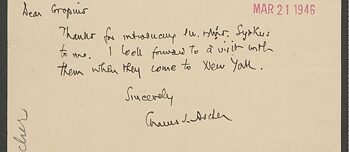 MAR 21 1946
Dear Gropius
Thanks for introducing Mr. & Mrs. Syrkus
to me. I look forward to a visit with
them when they come to New York.
Sincerely
Charles S. Ascher